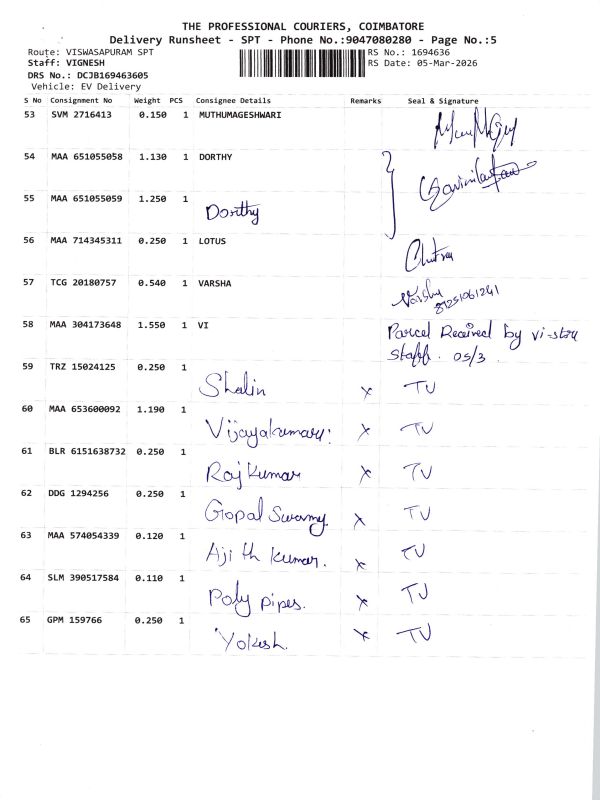 THE PROFESSIONAL COURIERS, COIMBATORE
Delivery Runsheet - SPT - Phone No.:9047080280 - Page No.:5
Route: VISWASAPURAM SPT RS No.: 1694636
Staff: VIGNESH RS Date: 05-Mar-2026
DRS No.: DCJB169463605
Vehicle: EV Delivery
S No Consignment No Weight PCS Consignee Details Remarks Seal & Signature
53 SVM 2716413 0.150 1 MUTHUMAGESHWARI
54 MAA 651055058 1.130 1 DORTHY
55 MAA 651055059 1.250 1
Dorthy
56 MAA 714345311 0.250 1 LOTUS
Chitra
57 TCG 20180757 0.540 1 VARSHA
Varsha
58 MAA 304173648 1.550 1 VI Parcel Received by vi-store
staff. 05/3
59 TRZ 15024125 0.250 1
Shalin x TU
60 MAA 653600092 1.190 1
Vijayakumary. x TU
61 BLR 6151638732 0.250 1
Rajkumar x TU
62 DDG 1294256 0.250 1
Gopal Swamy. x TU
63 MAA 574054339 0.120 1
Ajith kumar. x TU
64 SLM 390517584 0.110 1
Poly pipes. x TU
65 GPM 159766 0.250 1
Yokesh. x TU